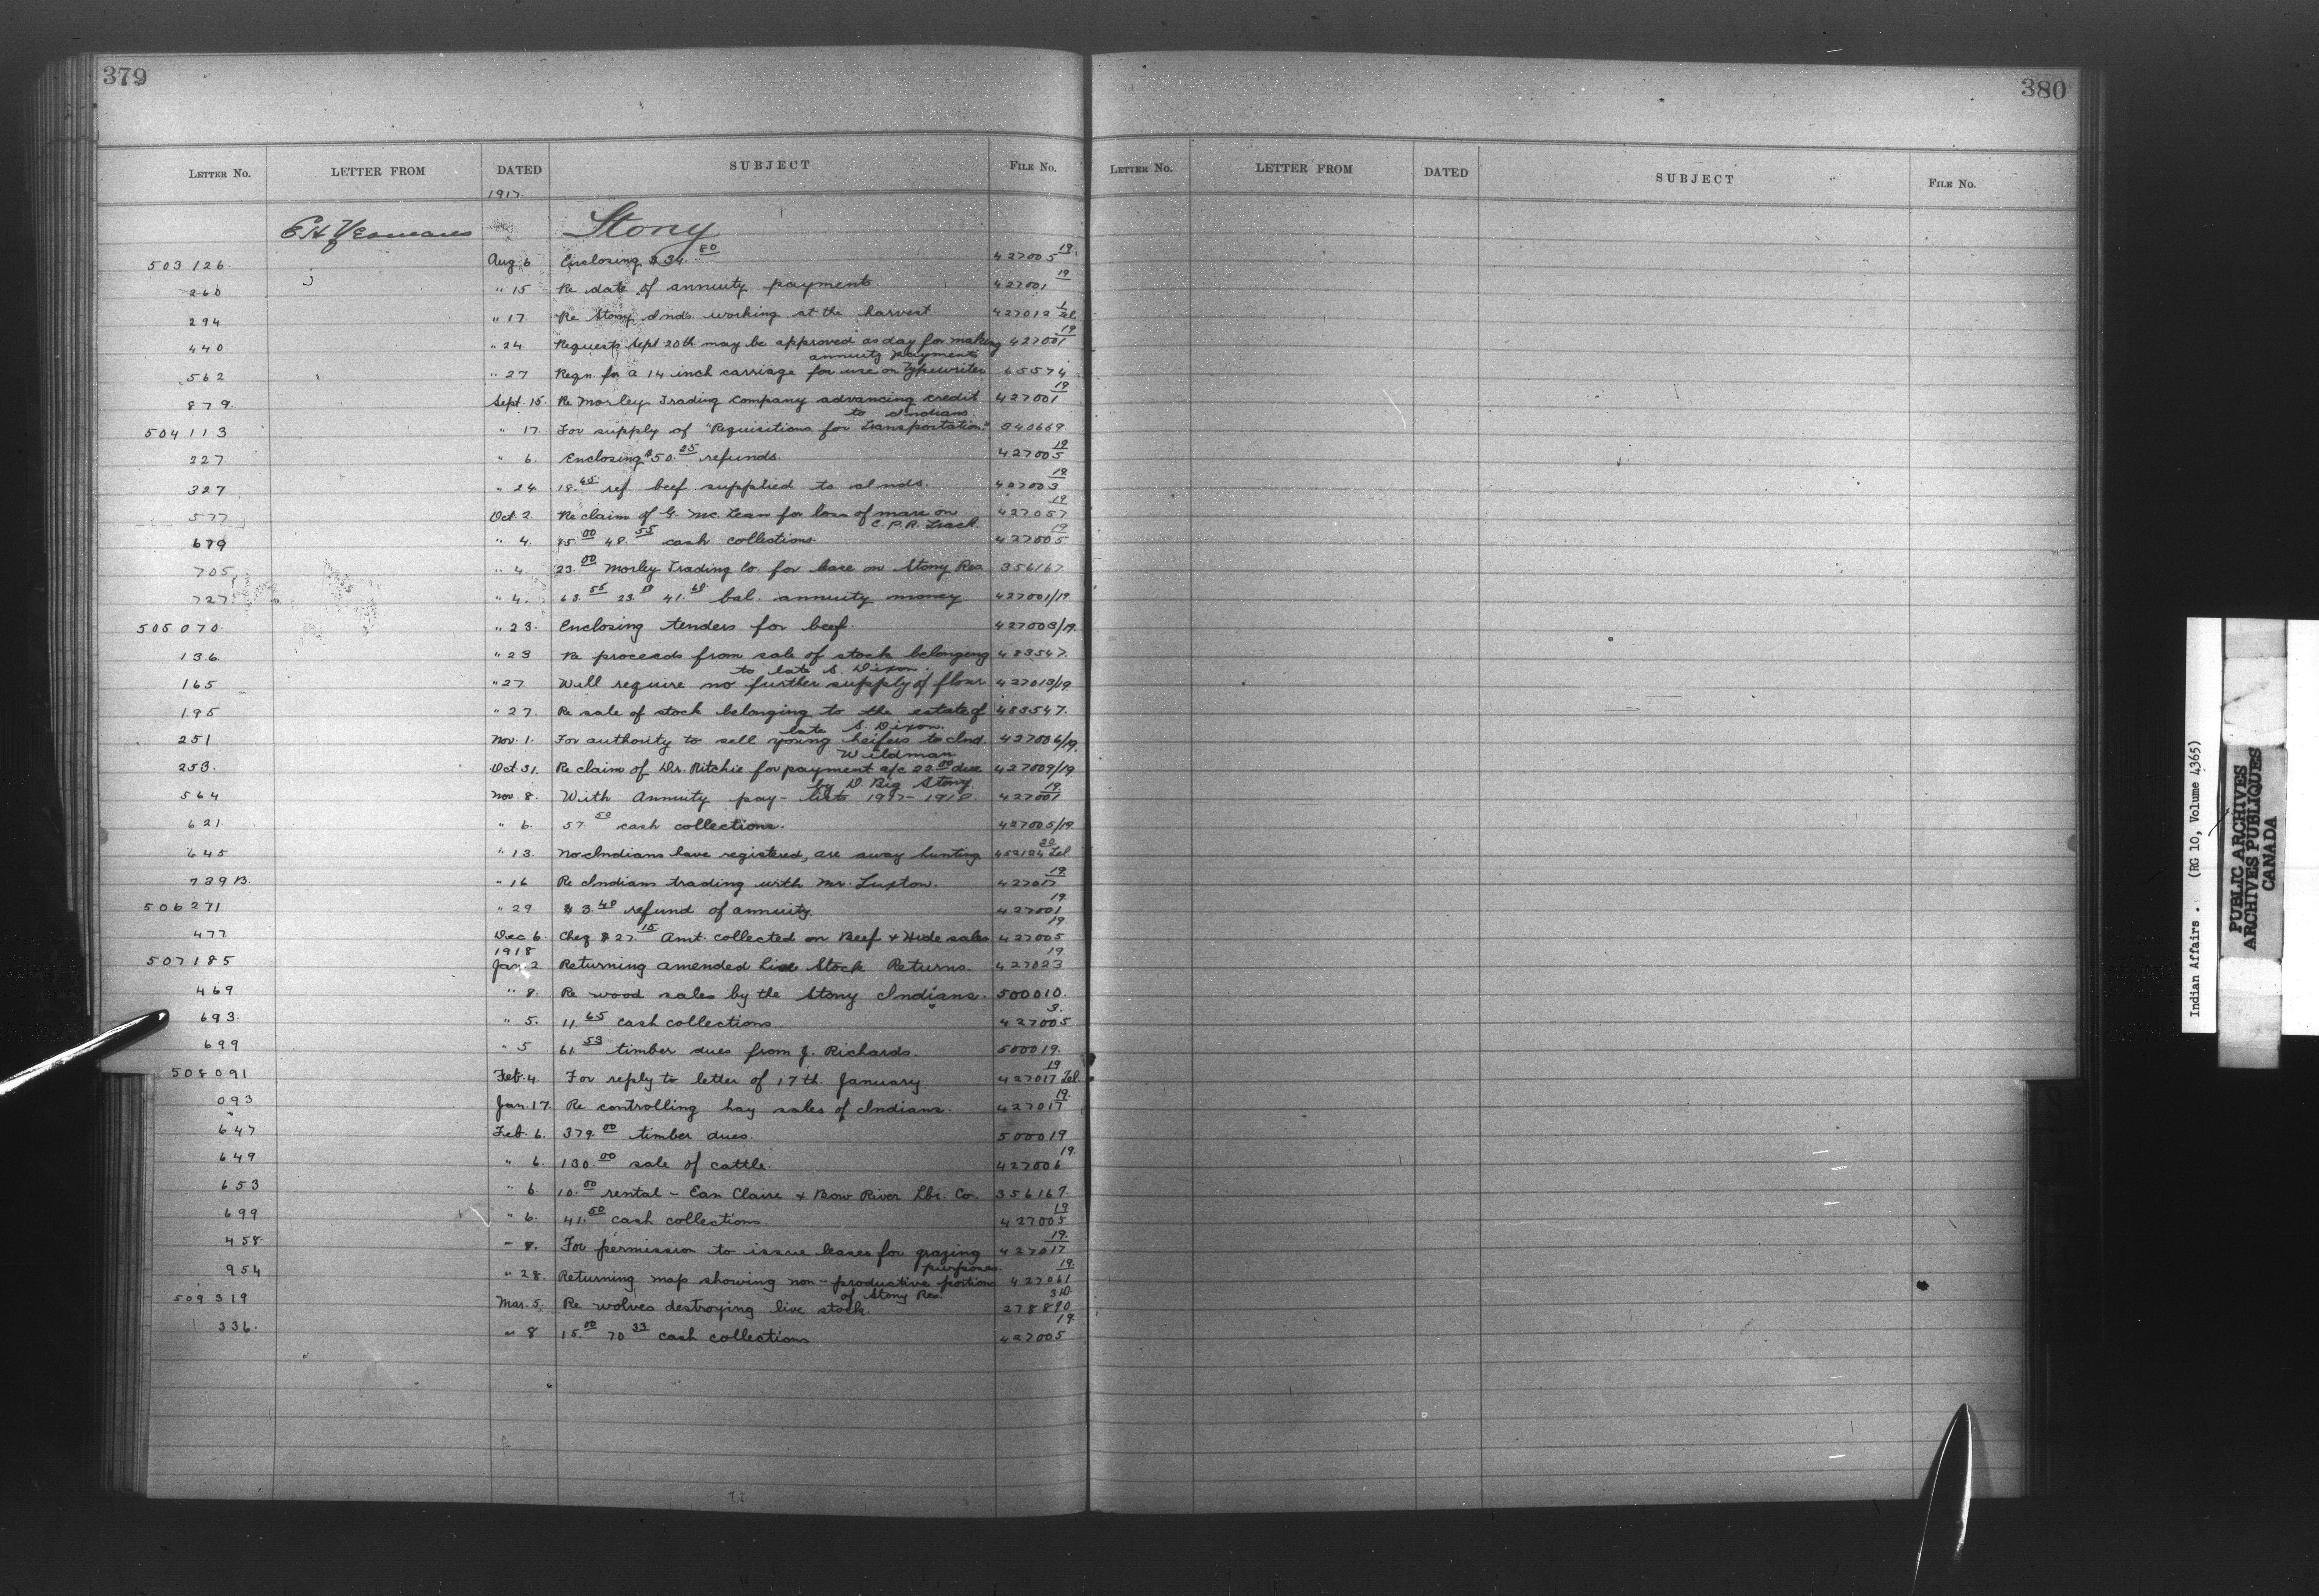 379
LETTER NO. LETTER FROM DATED SUBJECT FILE NO.
1917
E H Yeomans Stony
503126. Aug 6 Enclosing $34.80 427005 19.
260 " 15 Re date of annuity payments. 427001 19
294 " 17. Re Stony Inds working at the harvest 427012 1 Tel
440 " 24. Requests Sept 20th may be approved as day for making 427001 19
annuity payments
562 " 27 Reqn. for a 14 inch carriage for use on Typewriter 65574
879. Sept. 15. Re Morley Trading Company advancing credit 427001 19
to Indians.
504113 " 17. For supply of "Requisitions for Transportation." 340669
227. " 6. Enclosing $50.25 refunds. 427005 19
327 " 24 18.45 ref beef supplied to Inds. 427003 19
577 Oct. 2. Re claim of G. McLean for loss of mare on 427057 19
C.P.R. Track.
679 " 4. 15.00 48.55 cash collections. 427005 19
705. " 4. 23.00 Morley Trading Co. for lease on Stony Res. 356167
727. " 4. 63.55 23. 41.60 bal. annuity money 427001/19
505070. " 23. Enclosing tenders for beef. 427003/19.
136. " 23 Re proceeds from sale of stock belonging 483547.
to late S. Dixon.
165 " 27. Will require no further supply of flour 427013/19.
195 " 27. Re sale of stock belonging to the estate of 483547.
late S. Dixon.
251 Nov. 1. For authority to sell young heifers to Ind. 427006/19.
Wildman
253. Oct 31. Re claim of Dr. Ritchie for payment a/c 22.00 due 427009/19
by D Big Stony
564 Nov. 8. With Annuity pay-lists 1917-1918. 427001 19
621. " 6. 57.50 cash collections. 427005/19
645 " 13. No Indians have registered, are away hunting 452124 20 Tel
739B. " 16 Re Indians trading with Mr. Luxton. 427017 19
506271 " 29 $3.40 refund of annuity. 427001 19
477 Dec 6. Cheq $27.15 Amt. collected on Beef & Hide sales 427005 19
1918
507185 Jan. 2 Returning amended Live Stock Returns. 427023 19
469 " 8. Re wood sales by the Stony Indians. 500010.
693. " 5. 11.65 cash collections. 427005 3.
699 " 5 61.53 timber dues from J. Richards. 500019.
508091 Feb. 4. For reply to letter of 17th January 427017 19 Tel.
093 Jan. 17. Re controlling hay sales of Indians. 427017 19.
647 Feb. 6. 379.00 timber dues. 500019
649 " 6. 130.00 sale of cattle. 427006 19.
653 " 6. 10.00 rental - Eau Claire & Bow River Lbr. Co. 356167.
699 " 6. 41.50 cash collections. 427005 19
458 " 8. For permission to issue leases for grazing 427017 19.
purposes.
954 " 28. Returning map showing non-productive portions 427061 19.
of Stony Res.
509319 Mar. 5. Re wolves destroying live stock. 278890 310
336. " 8 15.00 70.33 cash collections 427005 19.
380
LETTER NO. LETTER FROM DATED SUBJECT FILE NO.
Indian Affairs. (RG 10, Volume 4365)
PUBLIC ARCHIVES
ARCHIVES PUBLIQUES
CANADA